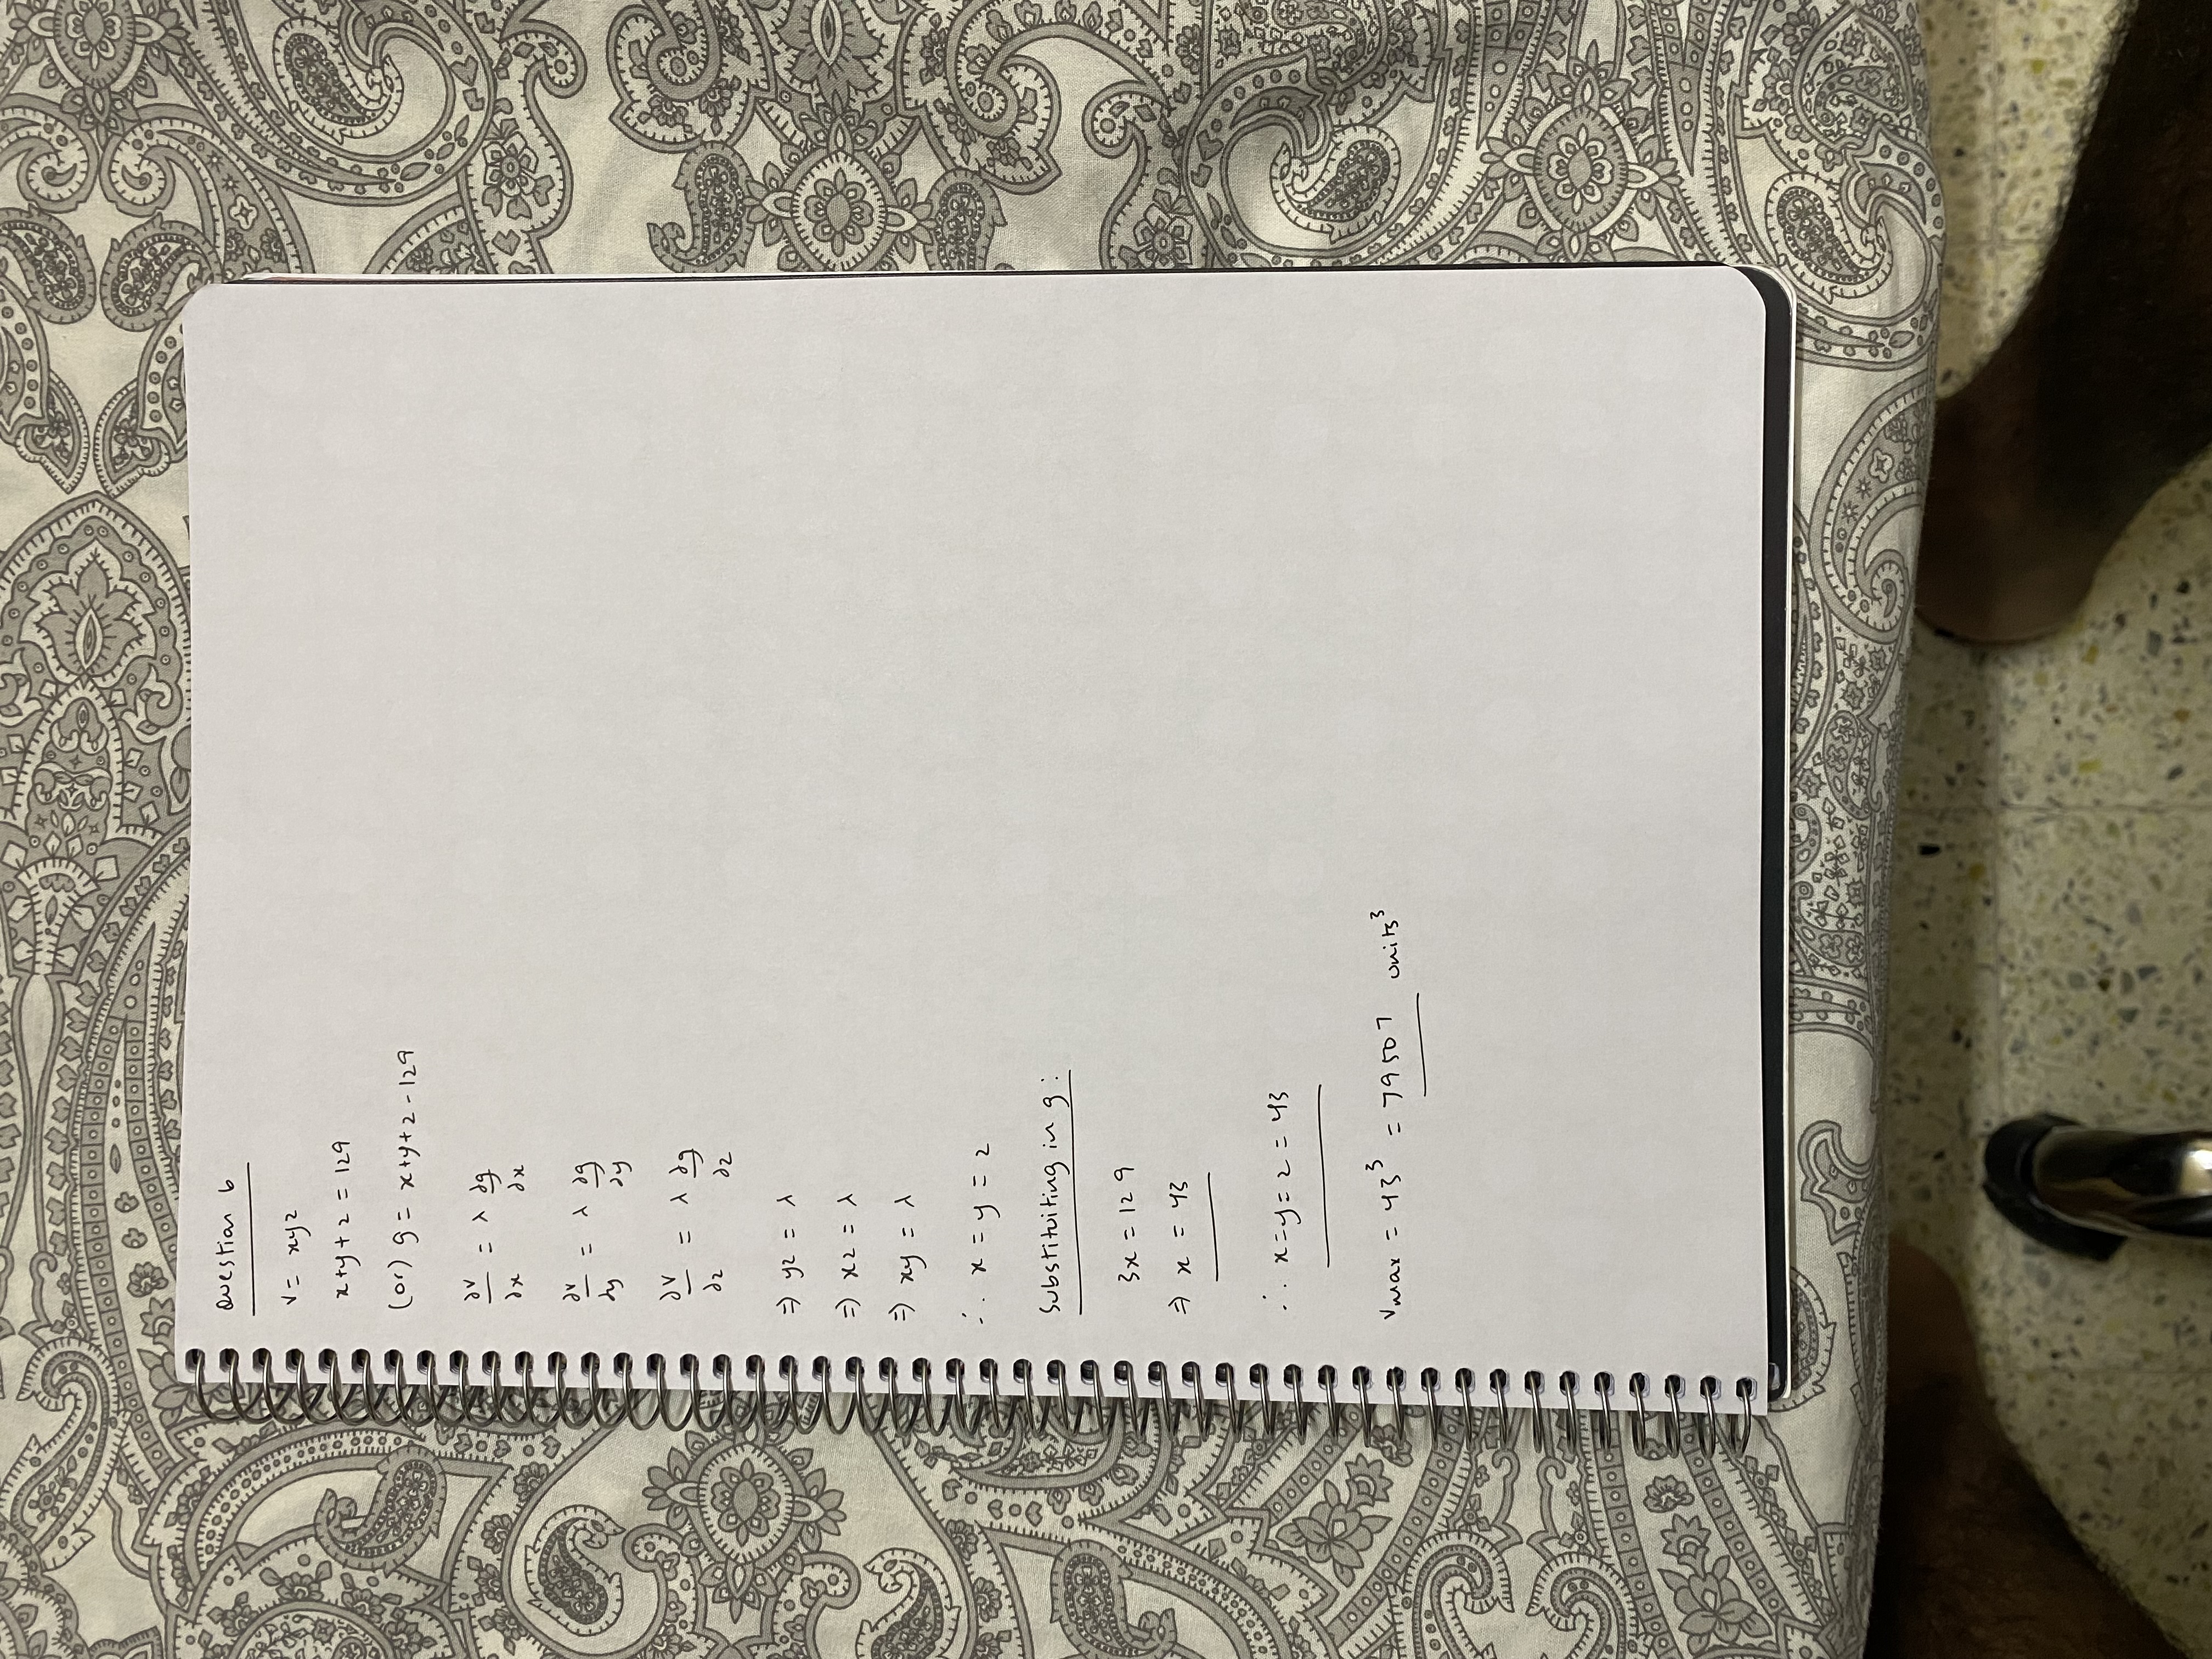 Question 6
V = xyz
x+y+z = 129
(or) g = x+y+z-129
∂V/∂x = λ ∂g/∂x
∂V/∂y = λ ∂g/∂y
∂V/∂z = λ ∂g/∂z
⇒ yz = λ
⇒ xz = λ
⇒ xy = λ
∴ x = y = z
Substituiting in g:
3x = 129
⇒ x = 43
∴ x=y=z = 43
Vmax = 43³ = 79507 units³